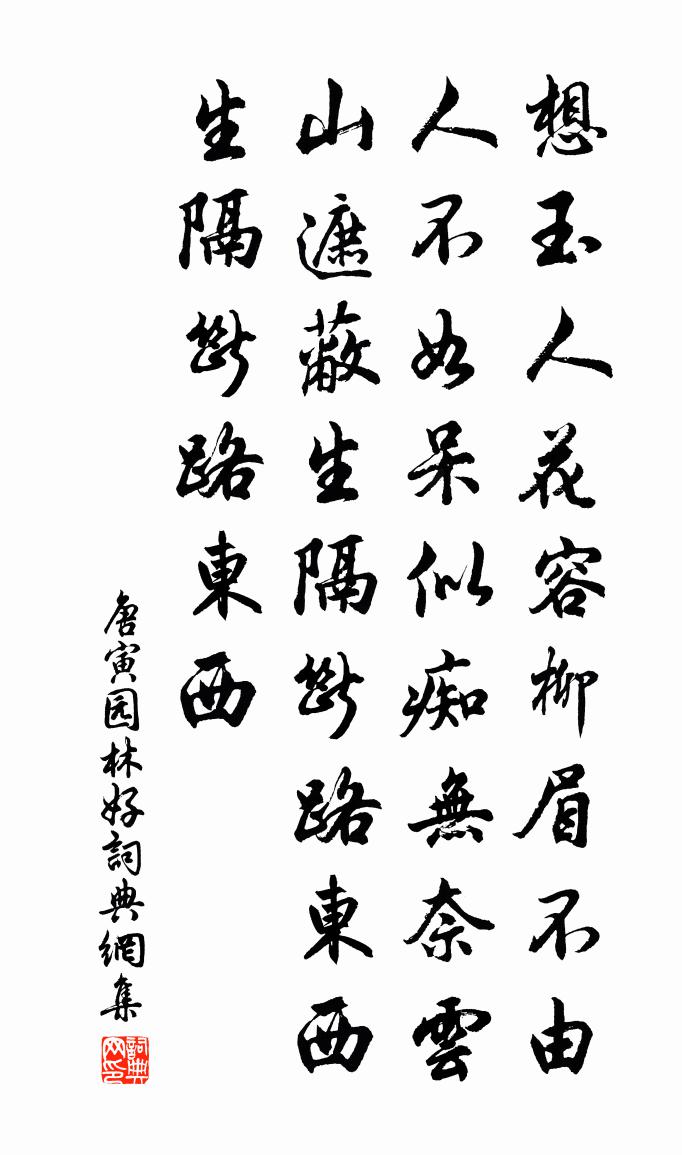 想玉人花容柳眉不由
人不如呆似痴無奈雲
山遮蔽生隔斷路東西
生隔斷路東西
唐寅园林好詞典網集
詞典网印